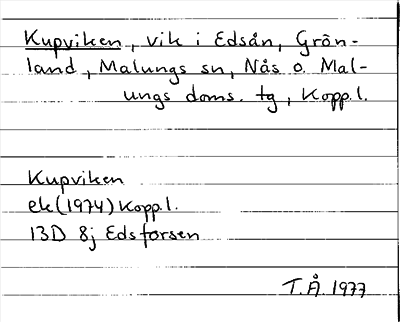 Kupviken, vik i Edsån, Grön-
land, Malungs sn, Nås o. Mal-
ungs doms. tg, Kopp.l.
Kupviken
ek (1974) Kopp.l.
13D 8j Edsforsen
T.Å 1977